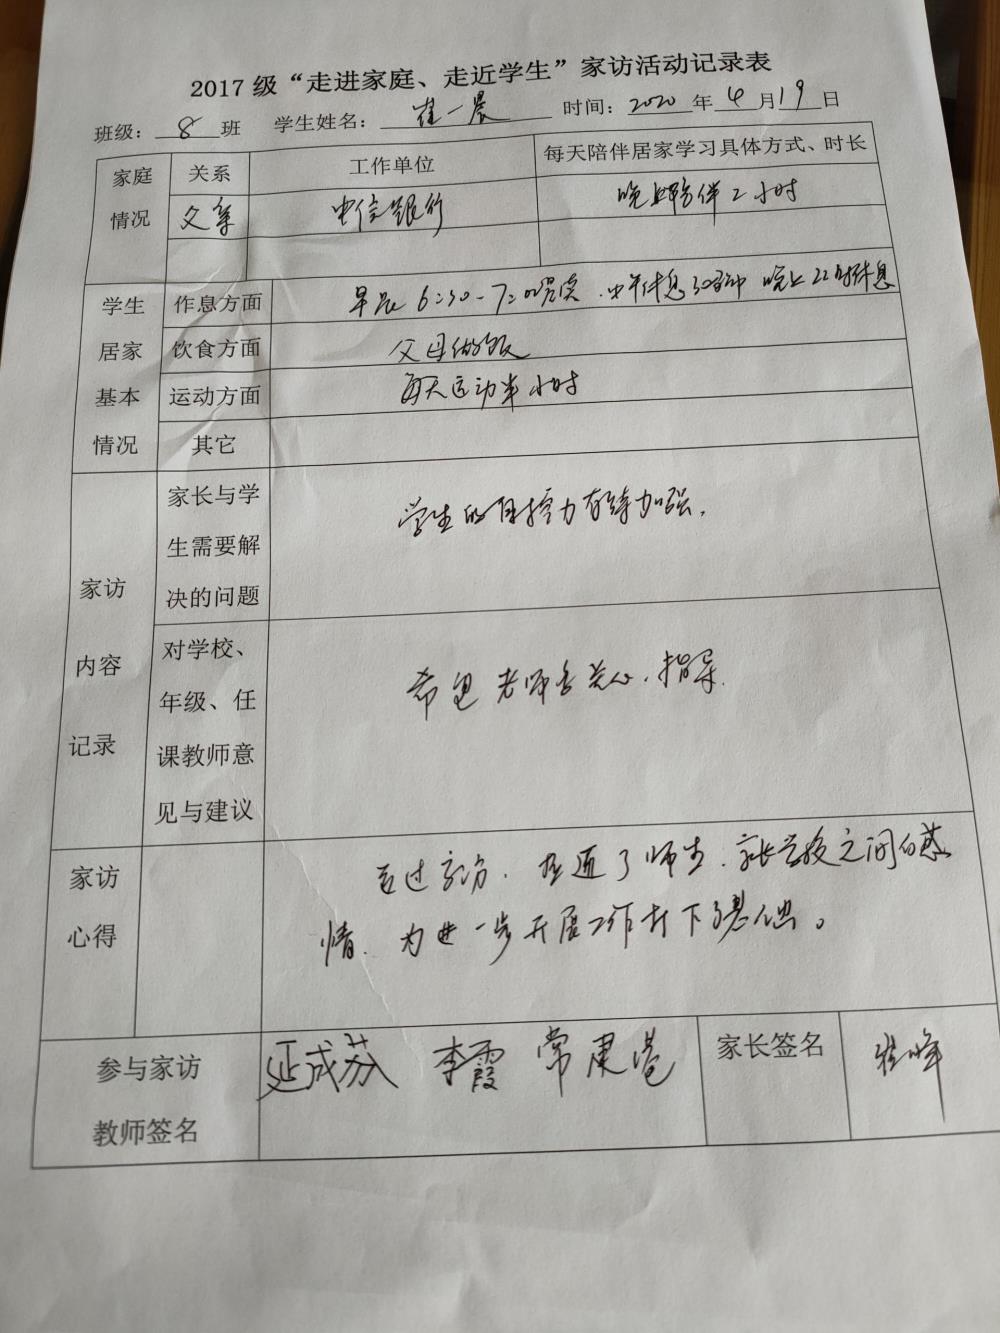 2017级“走进家庭、走近学生”家访活动记录表
班级：8班 学生姓名：崔一晨 时间：2020年4月19日
家庭情况 关系 工作单位 每天陪伴居家学习具体方式、时长
父亲 中信银行 晚上陪伴2小时
学生居家基本情况 作息方面 早晨6:30-7:00晨读、中午休息30分钟 晚上22时休息
饮食方面 父母做饭
运动方面 每天运动半小时
其它
家访内容记录 家长与学生需要解决的问题 学生的自控力有待加强。
对学校、年级、任课教师意见与建议 希望老师多关心、指导
家访心得 通过家访，拉近了师生、家长学校之间的感
情，为进一步开展工作打下了基础。
参与家访教师签名 延成芬 李霞 常建港 家长签名 崔峰